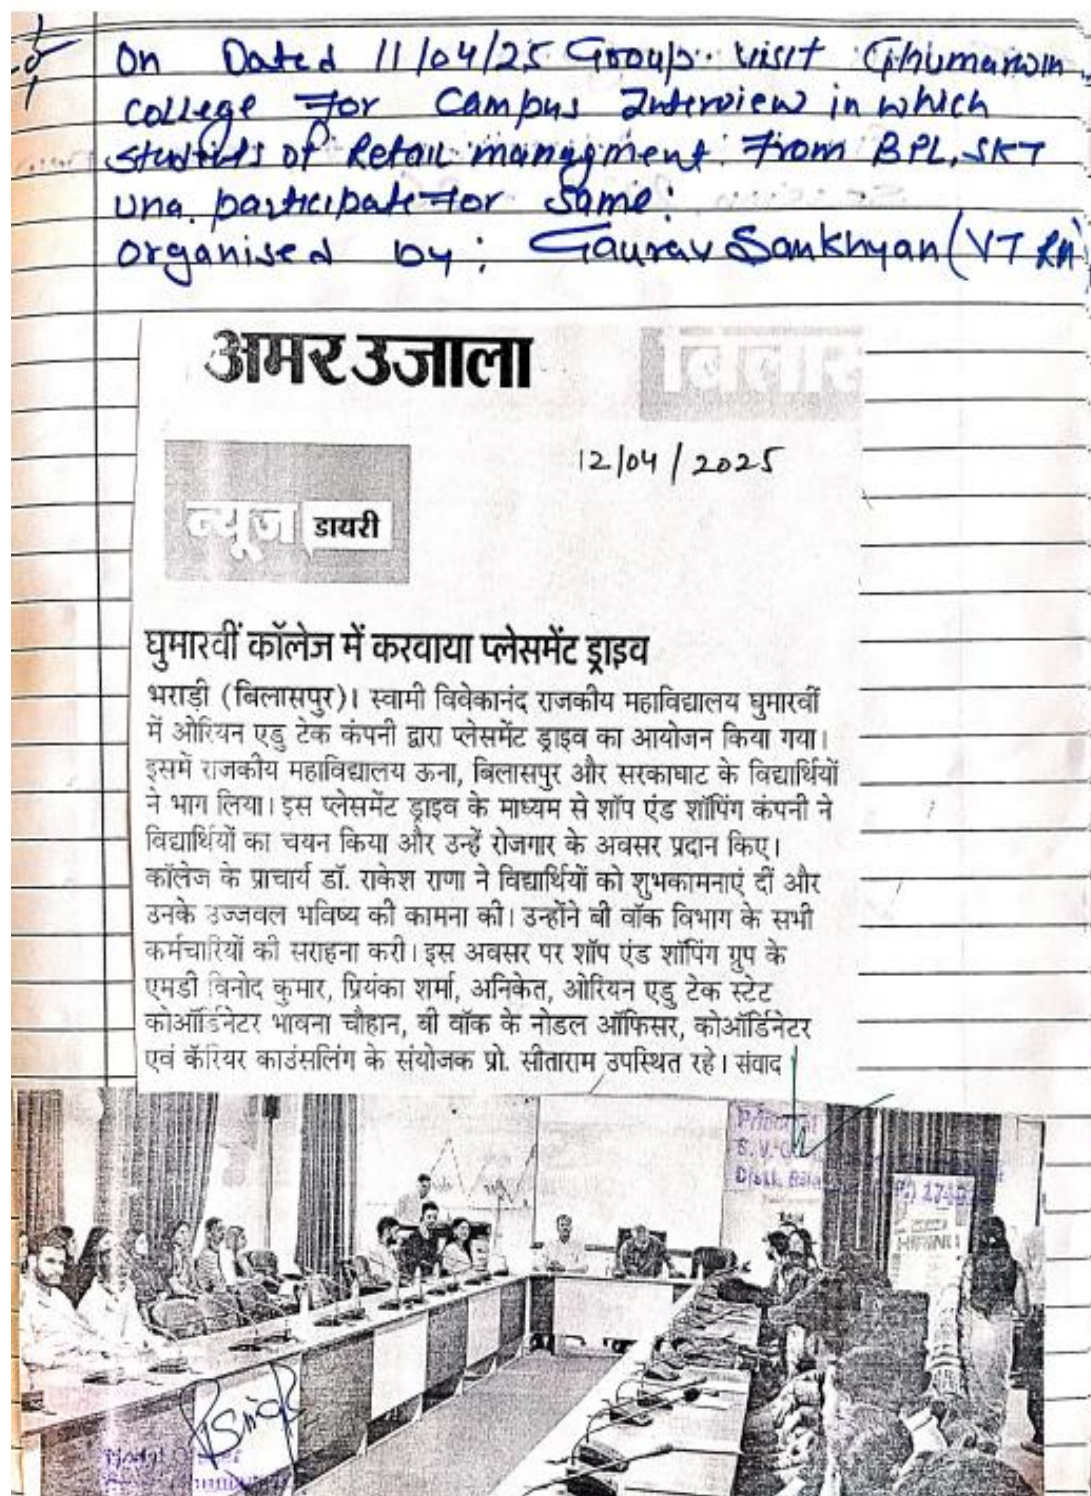 On Dated 11/04/25 Group visit Ghumarwin
college for Campus Interview in which
students of Retail managment from BPL, SKT
Una participate for same.
Organised by: Gaurav Sankhyan (VT RM)
अमर उजाला
12/04/2025
न्यूज डायरी
घुमारवीं कॉलेज में करवाया प्लेसमेंट ड्राइव
भराड़ी (बिलासपुर)। स्वामी विवेकानंद राजकीय महाविद्यालय घुमारवीं
में ओरियन एडु टेक कंपनी द्वारा प्लेसमेंट ड्राइव का आयोजन किया गया।
इसमें राजकीय महाविद्यालय ऊना, बिलासपुर और सरकाघाट के विद्यार्थियों
ने भाग लिया। इस प्लेसमेंट ड्राइव के माध्यम से शॉप एंड शॉपिंग कंपनी ने
विद्यार्थियों का चयन किया और उन्हें रोजगार के अवसर प्रदान किए।
कॉलेज के प्राचार्य डॉ. राकेश राणा ने विद्यार्थियों को शुभकामनाएं दीं और
उनके उज्जवल भविष्य की कामना की। उन्होंने बी वॉक विभाग के सभी
कर्मचारियों की सराहना करी। इस अवसर पर शॉप एंड शॉपिंग ग्रुप के
एमडी विनोद कुमार, प्रियंका शर्मा, अनिकेत, ओरियन एडु टेक स्टेट
कोऑर्डिनेटर भावना चौहान, बी वॉक के नोडल ऑफिसर, कोऑर्डिनेटर
एवं कॅरियर काउंसलिंग के संयोजक प्रो. सीताराम उपस्थित रहे। संवाद
Principal
S. V. G
Distt.